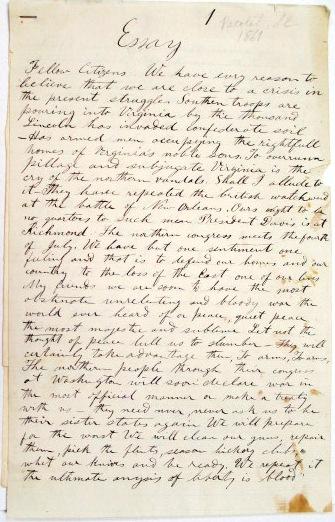 1
1861
Essay
Fellow Citizens We have evry reason to
believe that we are close to a crisis in
the present struggle. Southen troops are
pouring into Virginia by the thousand
Lincoln has invaded confederate soil
- Has armed men occupying the rightfull
homes of Virginia's noble sons. To overrunn
pillage and subjugate Virginia is the
cry of the northern vandals. Shall I allude to
it - They have repeated the british watchword
at the battle of New Orleans. Ours ought to be
no quarters to such men President Davis is at
Richmond The nothern congress meets the fourth
of July. We have but one sentiment one
feeling and that is to defend our homes and our
country to the loss of the last one of our lives
My friends we are soon to have the most
obstinate unrelenting and bloody war the
world ever heard of or peace, quiet peace
the most majestic and sublime Let not the
thought of peace lull us to slumber - They will
certainly take advantage then, To arms, To arms.
The northern people through their congress
at Washington will soon declare war in
the most official manner or make a treaty
with us - they need never, never ask us to be
their sister states again We will prepare
for the worst We will clean our guns, repair
them, pick the flints, season hickory clubs,
whet our knives and be ready. We repeat it
the ultimate of liberty is blood